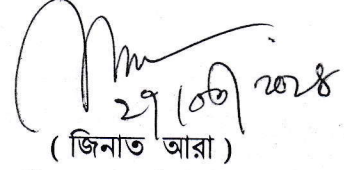 ২৭|০৩|২০২৪
( জিনাত আরা )